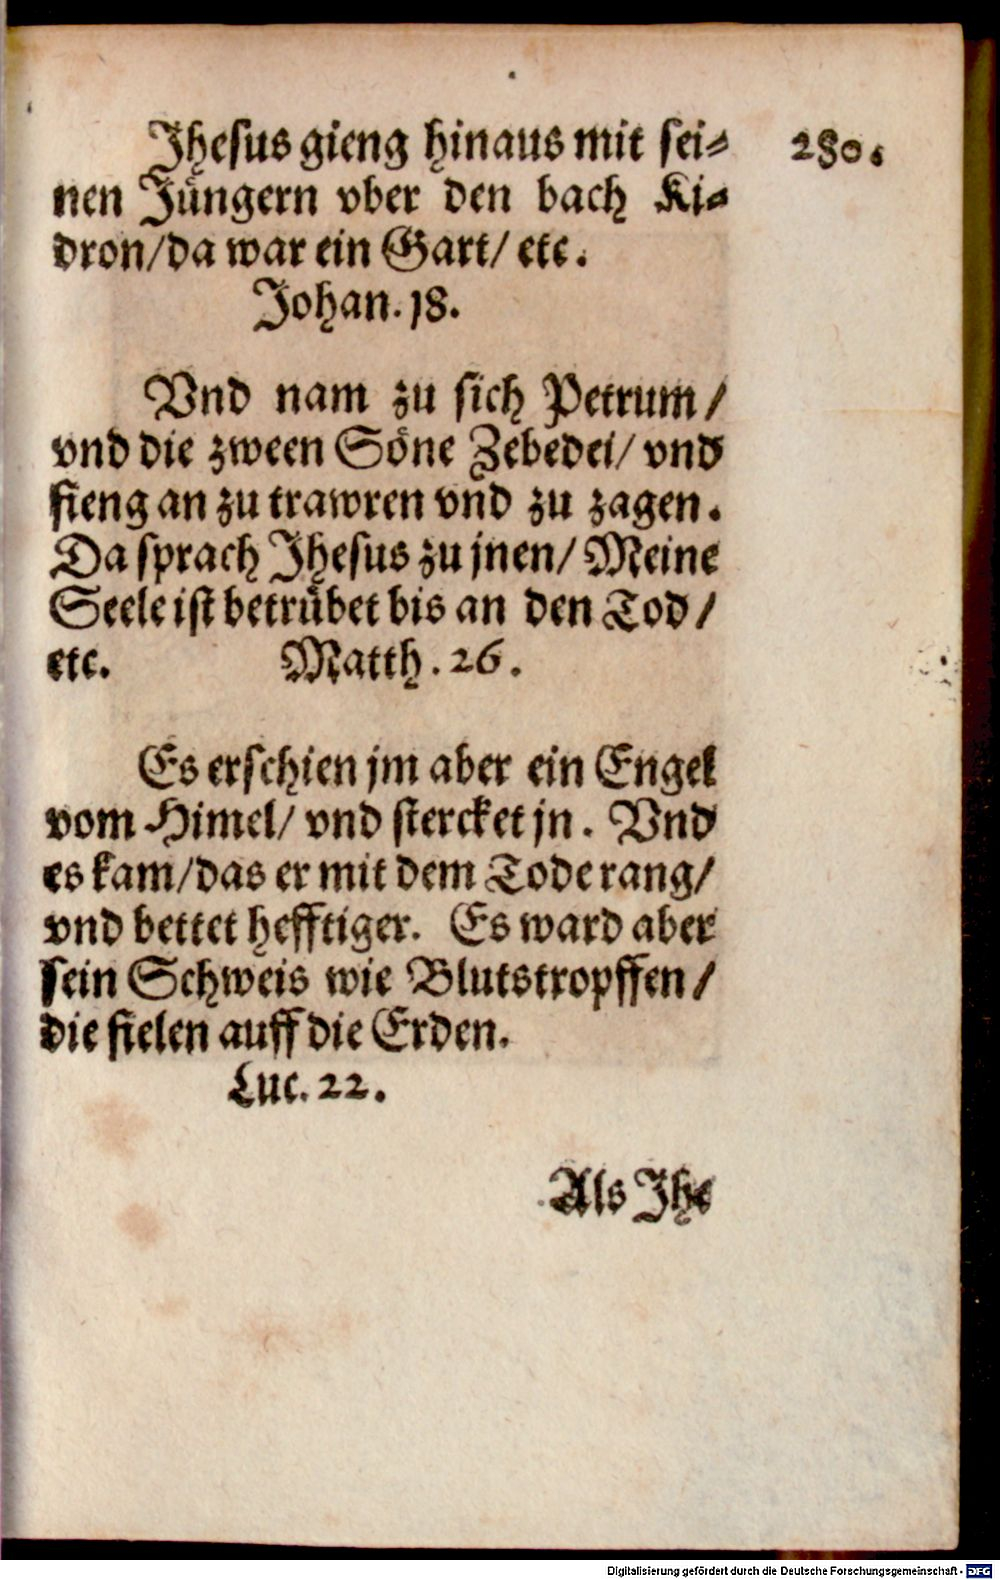 Jhesus gieng hinaus mit sei⸗
280.
nen Jüngern vber den bach Ki⸗
dron/da war ein Gart/ etc.
Johan. 18.
Vnd nam zu sich Petrum/
vnd die zween Söne Zebedei/ vnd
fieng an zu trawren vnd zu zagen.
Da sprach Jhesus zu jnen/ Meine
Seele ist betrübet bis an den Tod/
etc. Matth. 26.
Es erschien jm aber ein Engel
vom Himel/ vnd stercket jn. Vnd
es kam/das er mit dem Tode rang/
vnd bettet hefftiger. Es ward aber
sein Schweis wie Blutstropffen/
die fielen auff die Erden.
Luc. 22.
Als Jhe
Digitalisierung gefördert durch die Deutsche Forschungsgemeinschaft - DFG